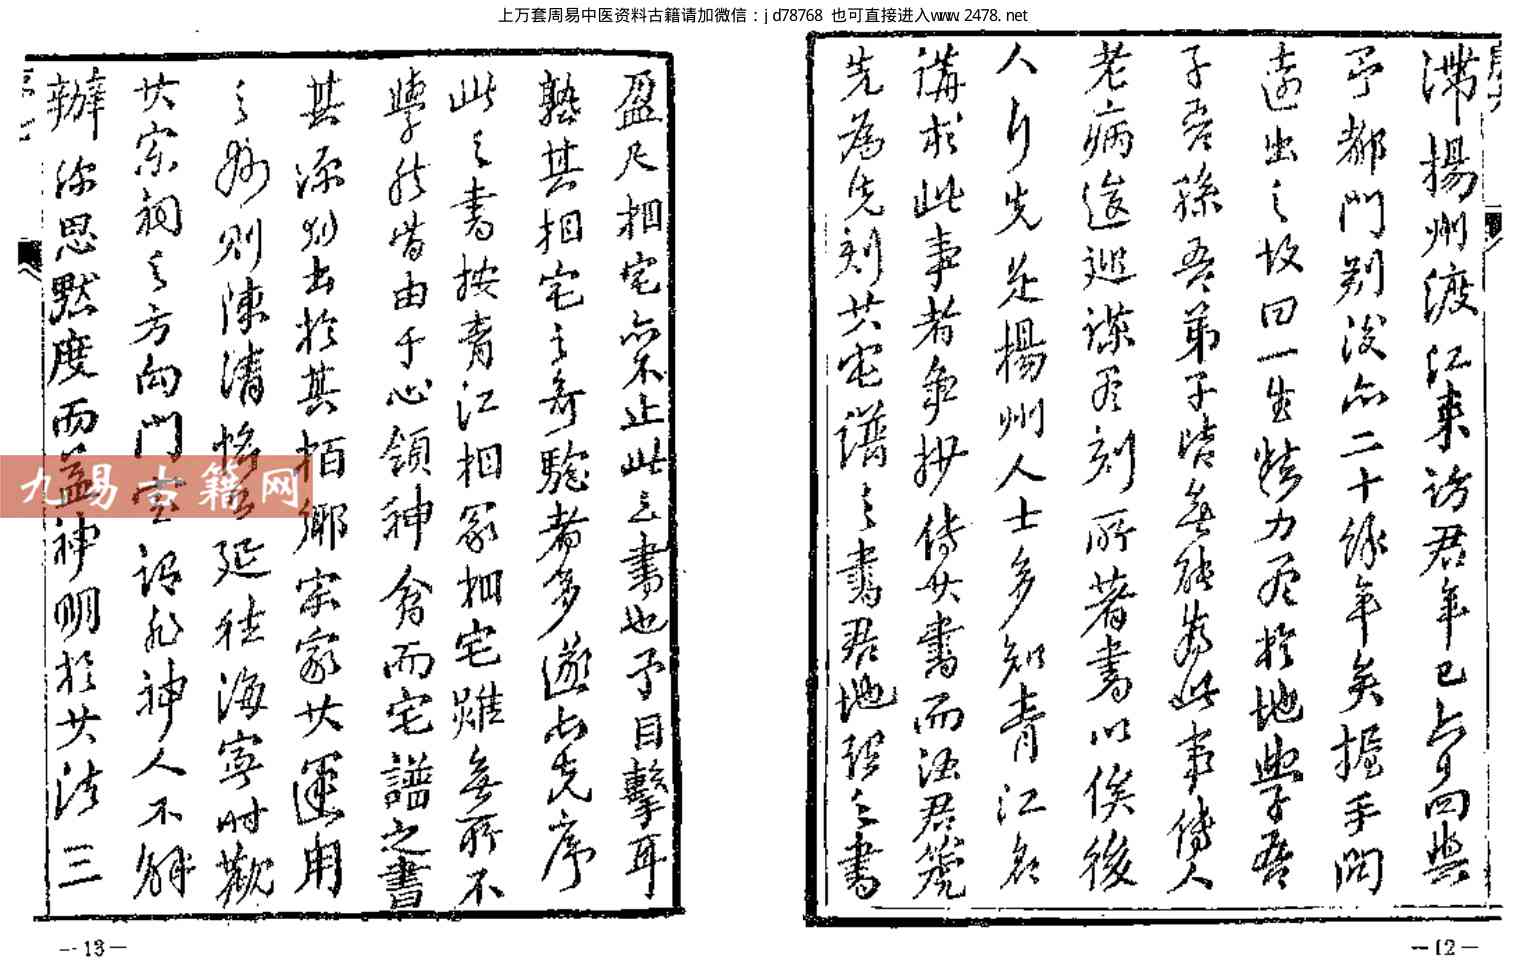 上万套周易中医资料古籍请加微信：jd78768 也可直接进入www.2478.net
滞揚州渡江来訪君年已占曰與
予都門别後亦二十餘年矣握手問
遠出之故曰一生精力尽於地與子吾
子吾孫吾弟子皆無能為此事傳人
老病逡巡謀尽刻所著書以俟後
人行先是揚州人士多知青江名
講求此事者争抄傳其書而凂君箴
先為先刻其宅譜之書君地理之書
盈尺相宅亦不止此之書也予目擊耳
熟其相宅之奇驗者多遂為先序
此之書按青江相冢相宅雖無所不
學然皆由于心領神會而宅譜之書
其源則出於其栢鄉宗家其運用
之妙則陳清恪公延往海寧时觀
其宗祠之方向門堂詔飛神人不解
辦深思默度而益神明於其法三
九易古籍网
-12-
-13-